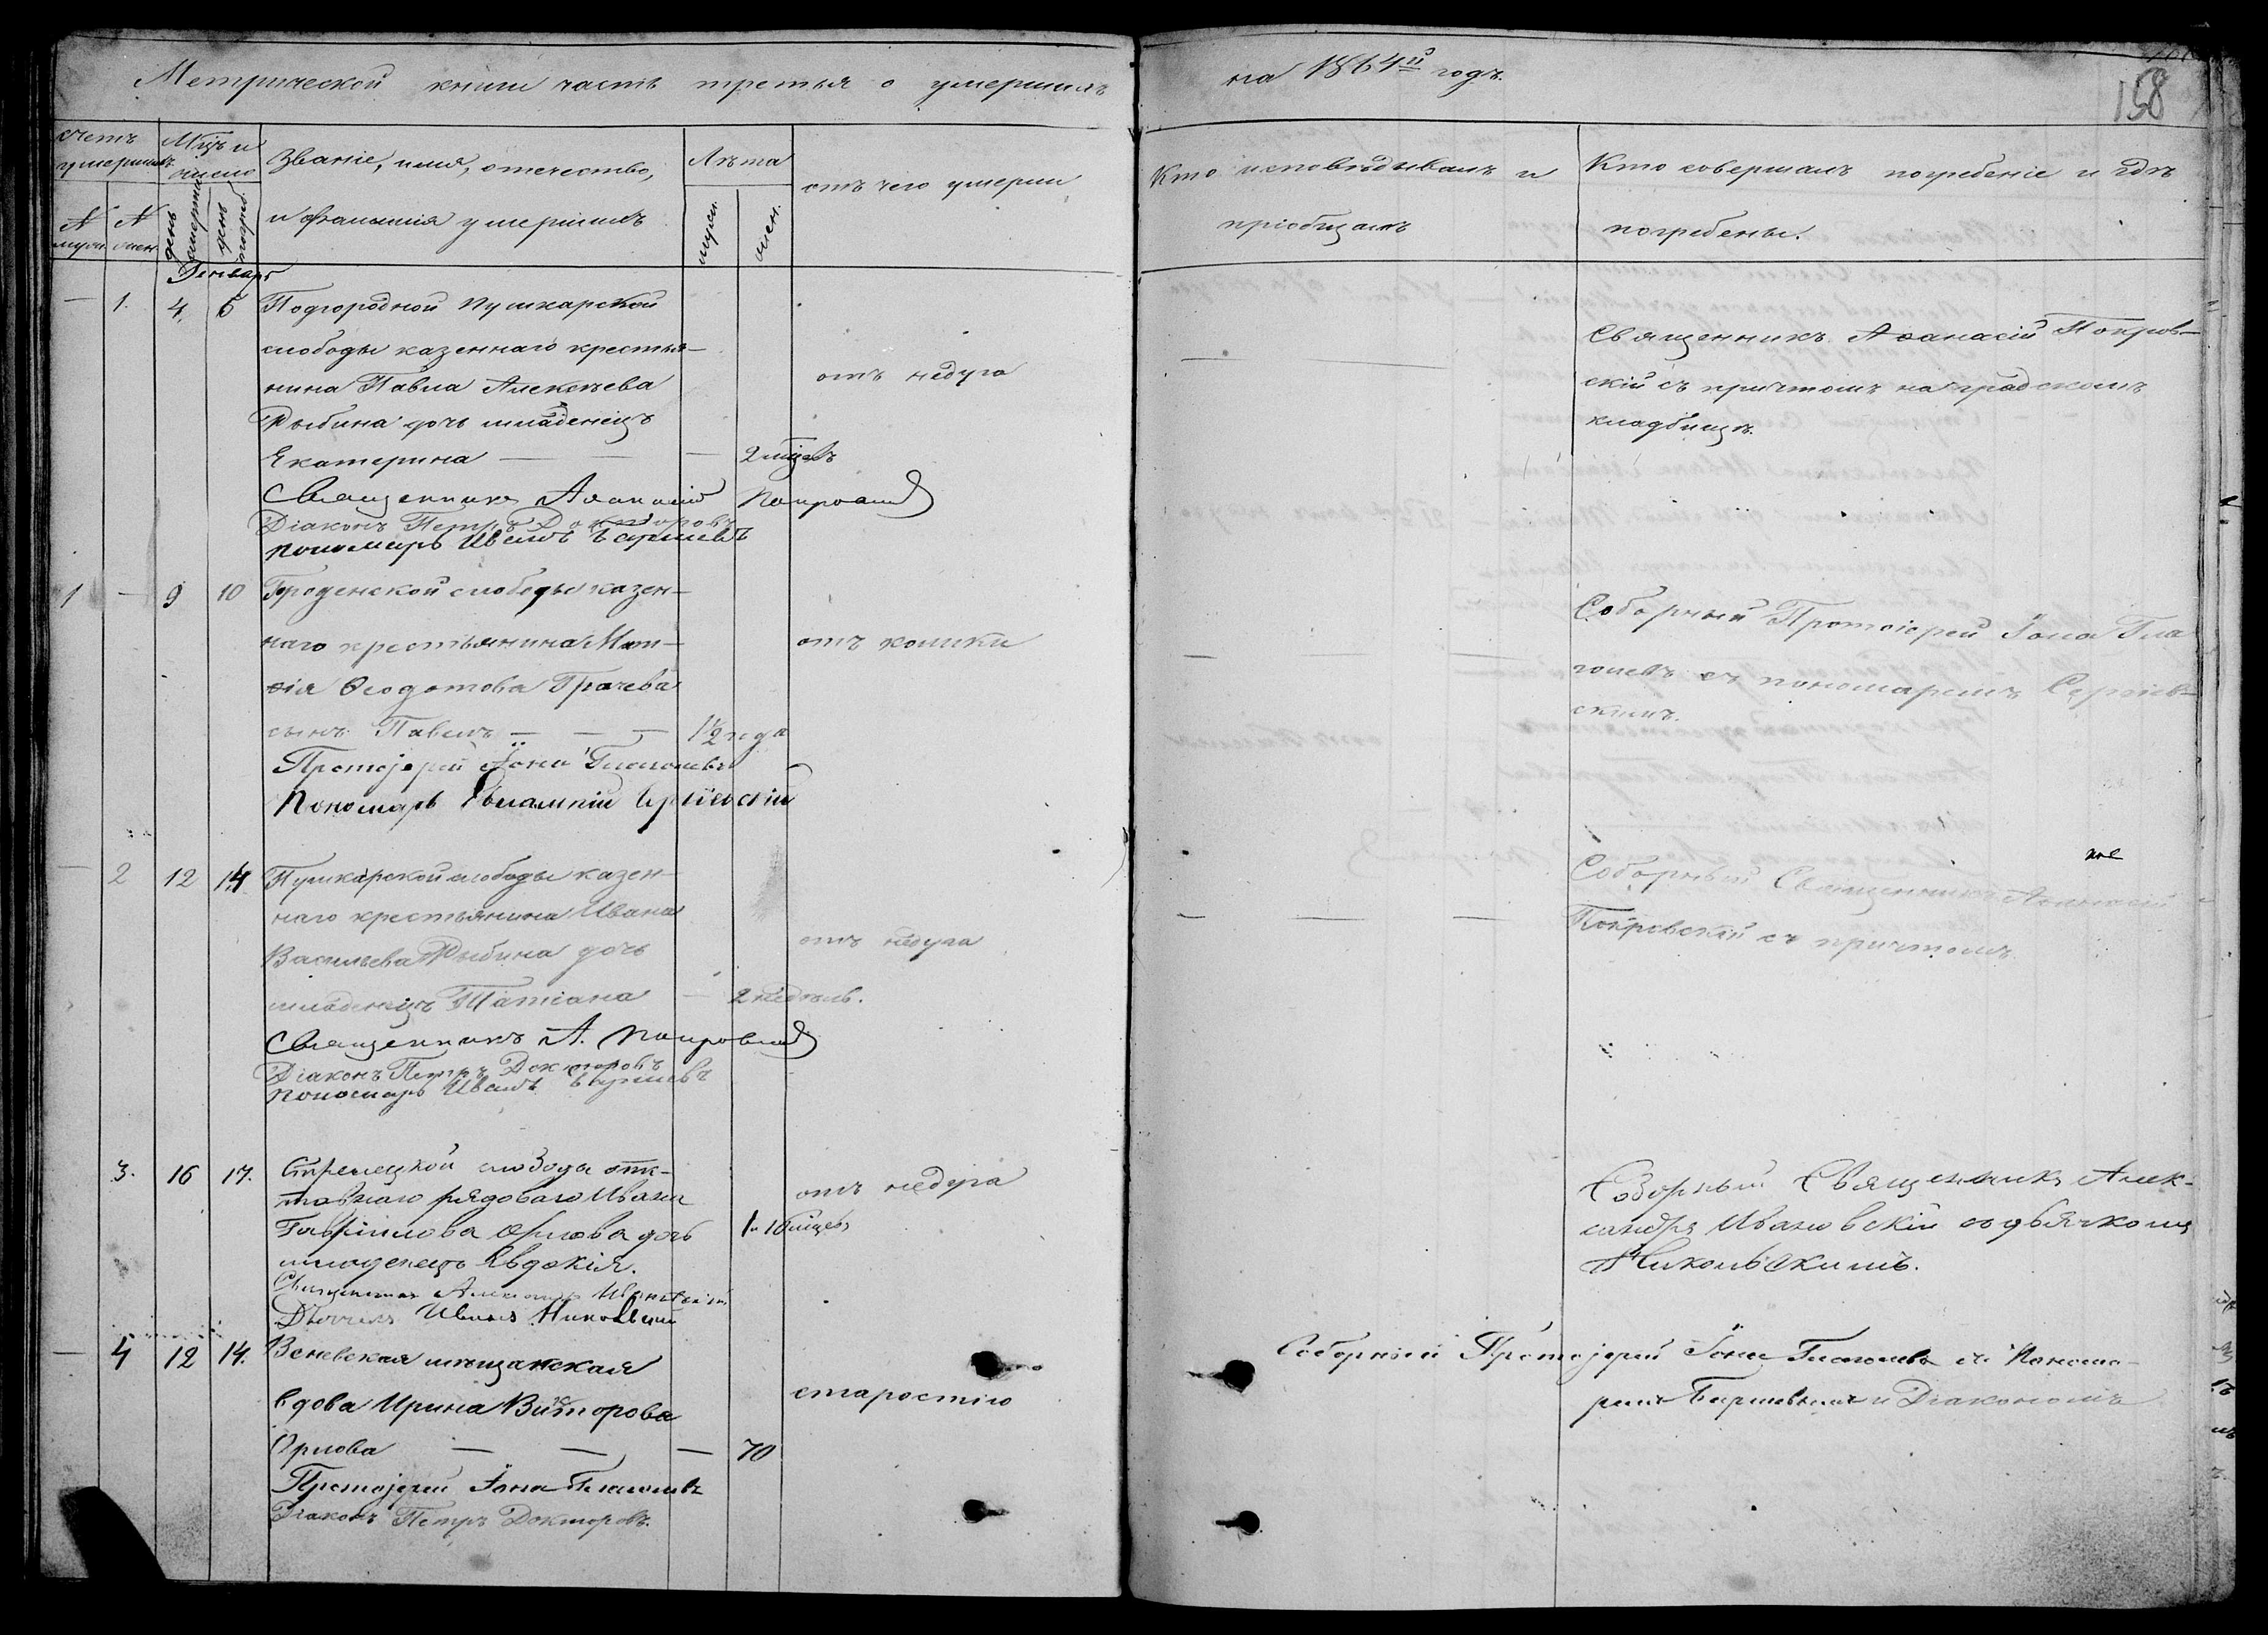 Метрической книги часть третья о умершихъ
на 1864й годъ.
158
Счетъ умершихъ
Мцъ и число
Званіе, имя, отечество,
и фамилія умершихъ
Лѣта
отъ чего умерли
Кто исповѣдывалъ и
пріобщалъ
Кто совершалъ погребеніе и гдѣ
погребены.
№ муж.
№ жен.
день смерти
день погреб.
муж.
жен.
Генварь
— 1. 4. 5 Подгородной Пушкарской
слободы казеннаго крестья-
нина Павла Алексѣева
Рыбина дочь младенецъ
Екатерина — — — 2 мцевъ
отъ недуга
Священникъ Аѳанасій Покров-
скій съ причтомъ на градскомъ
кладбищѣ.
Священникъ Аѳанасій Покровскій
Діаконъ Петръ Докторовъ
Пономарь Иванъ
1 — 9 10 Городенской слободы казен-
наго крестьянина Мат-
ѳія Ѳеодотова Грачева
сынъ Павелъ — — — 1½ года
отъ колики
Соборный Протоіерей Іона Гла
голевъ съ пономаремъ Сергіев-
скимъ.
Протоіерей Іона Глаголевъ
Пономарь Евлампій Сергіевскій
— 2 12 14 Пушкарской слободы казен-
наго крестьянина Ивана
Васильева Рыбина дочь
младенецъ Татіана — 2 недѣль.
отъ недуга
Соборный Священникъ Аѳанасій
Покровскій съ причтомъ
Священникъ А. Покровскій
Діаконъ Петръ Докторовъ
Пономарь Иванъ
3. 16 17. Стрелецкой слободы отс-
тавнаго рядоваго Ивана
Гавриилова Орлова дочь
младенецъ Евдокія.
отъ недуга
Соборный Священникъ Алек-
сандръ Ивановскій со дьячкомъ
Никольскимъ.
Священникъ Александръ Ивановскій
Дьячекъ Иванъ Никольскій
— 4 12 14. Веневская мѣщанская
вдова Ирина Викторова
Орлова — — — 70
старостію
Соборный Протоіерей Іона Глаголевъ съ Понома-
ремъ и Діакономъ
Протоіерей Іона Глаголевъ
Діаконъ Петръ Докторовъ.